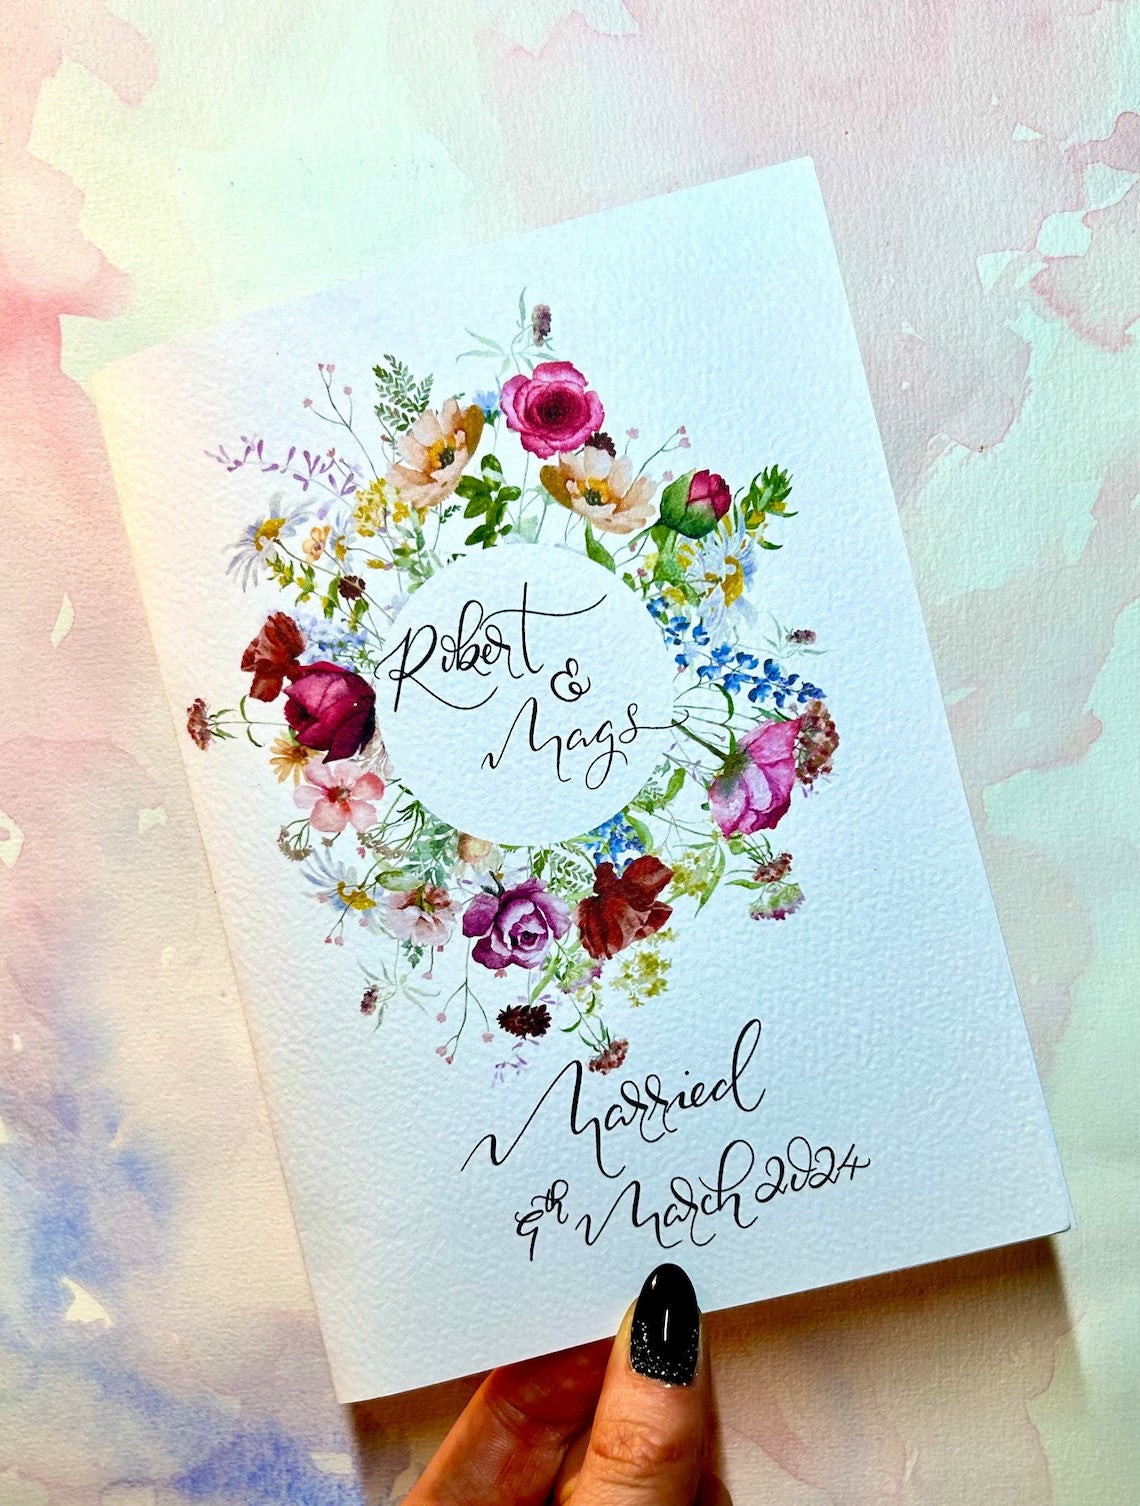 Robert
&
Mags
Married
9th March 2024